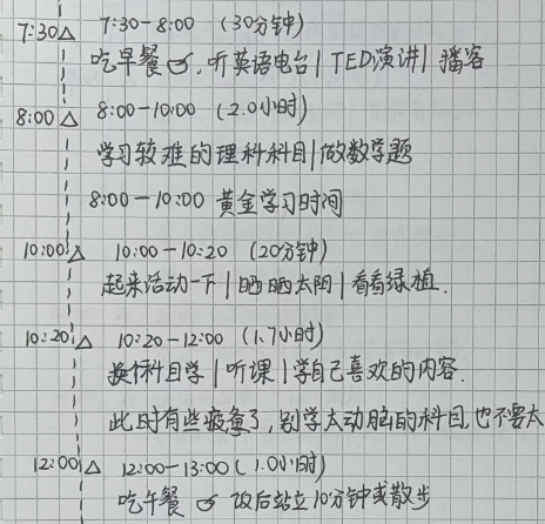 7:30△ 7:30-8:00 (30分钟)
吃早餐 , 听英语电台 | TED演讲 | 播客
8:00△ 8:00-10:00 (2.0小时)
学习较难的理科科目 | 做数学题
8:00-10:00 黄金学习时间
10:00△ 10:00-10:20 (20分钟)
起来活动一下 | 晒晒太阳 | 看看绿植.
10:20△ 10:20-12:00 (1.7小时)
换个科目学 | 听课 | 学自己喜欢的内容.
此时有些疲惫了, 别学太动脑的科目, 也不要太
12:00△ 12:00-13:00 (1.0小时)
吃午餐 饭后站立10分钟或散步